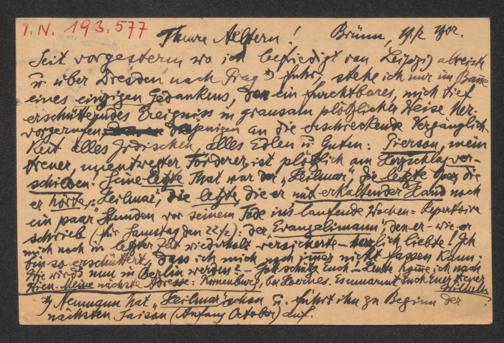 I. N. 193.577
Theure Aeltern! Brünn,
Seit vorgestern, wo ich befriedigt von Leipzig abreiste
u. über Dresden nach Prag fuhr, stehe ich nur im Banne
eines einzigen Gedankens, den ein furchtbares, mich tief
erschütterndes Ereigniss in grausam plötzlicher Weise her-
vorgerufen: an die erschreckende Vergänglich-
keit alles Irdischen, alles Edlen u. Guten: Pierson, mein
treuer, unentwegter Förderer ist plötzlich am Herzschlag ver-
schieden. Seine letzte That war der „Heilmar", die letzte Oper die
er hörte: Heilmar, die letzte, die er mit erkaltender Hand noch
ein paar Stunden vor seinem Tode ins laufende Wochen-Repertoire
schrieb (für Samstag den 22/2.) der Evangelimann, den er – wie er
mich noch in letzter Zeit wiederholt versicherte – liebte! Ich
bin so erschüttert, dass ich mich noch immer nicht fassen kann;
Wie wird's nun in Berlin werden? – Gott schütz Euch – Heute komme ich nach
Wien. Meine nächste Adresse: Es umarmt Euch Euer treuer
Wilhelm
Neumann hat Heilmar schon u. führt ihn zu Beginn der
nächsten Saison (Anfang October) auf.